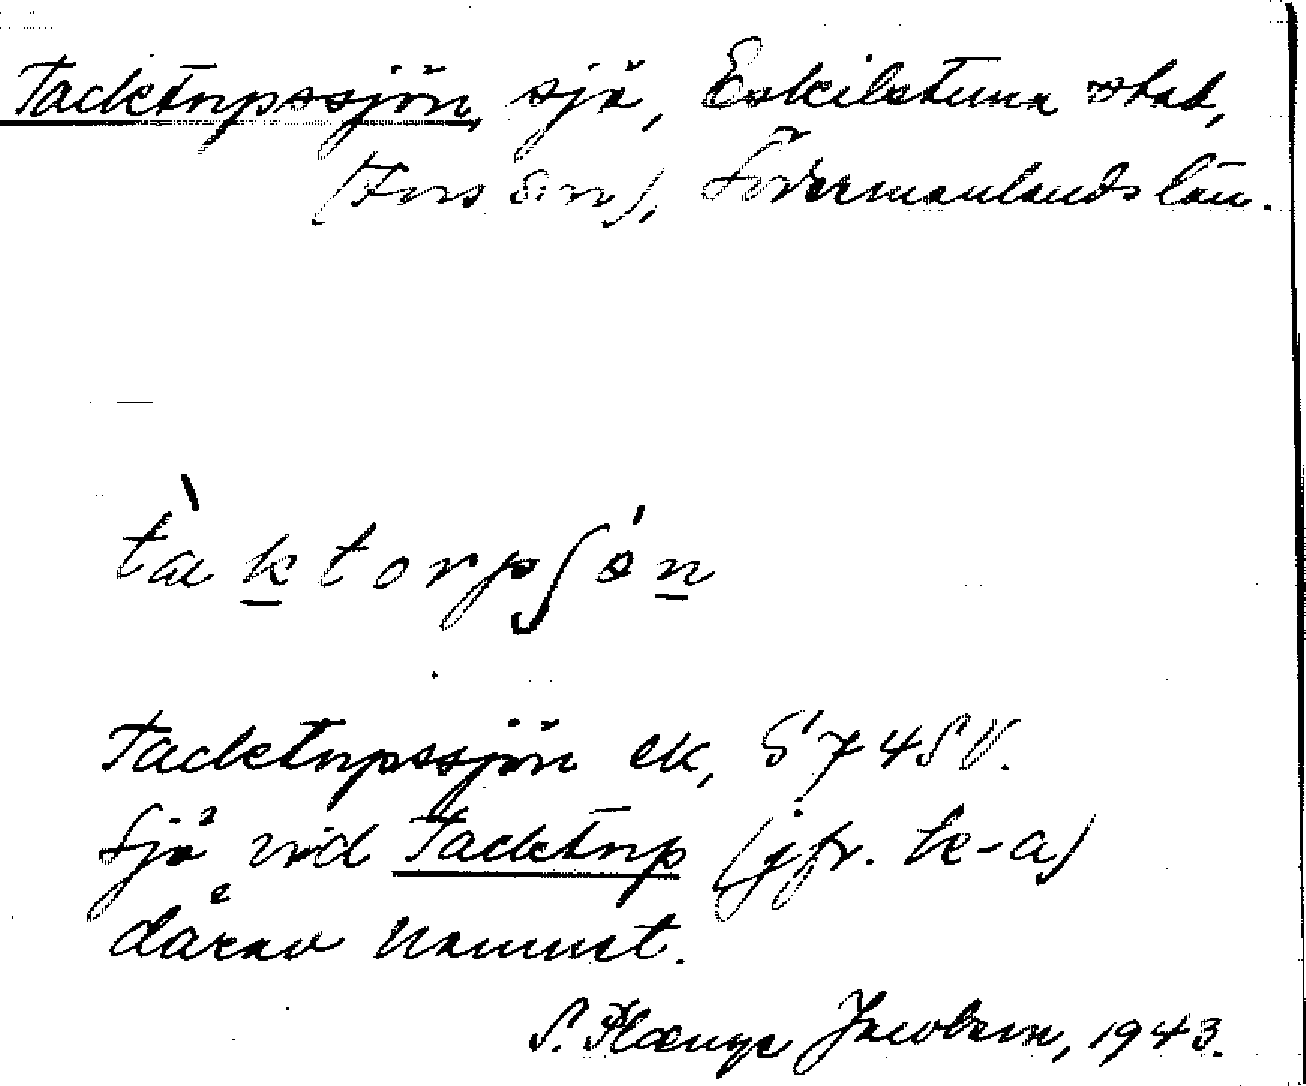 Tacktorpssjön, sjö, Eskilstuna stad,
(Fors sn), Södermanlands län.
tàktorpʃön
Tacktorpssjön ek, S74SV.
Sjö vid Tacktorp (jfr. k-a)
därav namnet.
S. Jacobson, 1943.